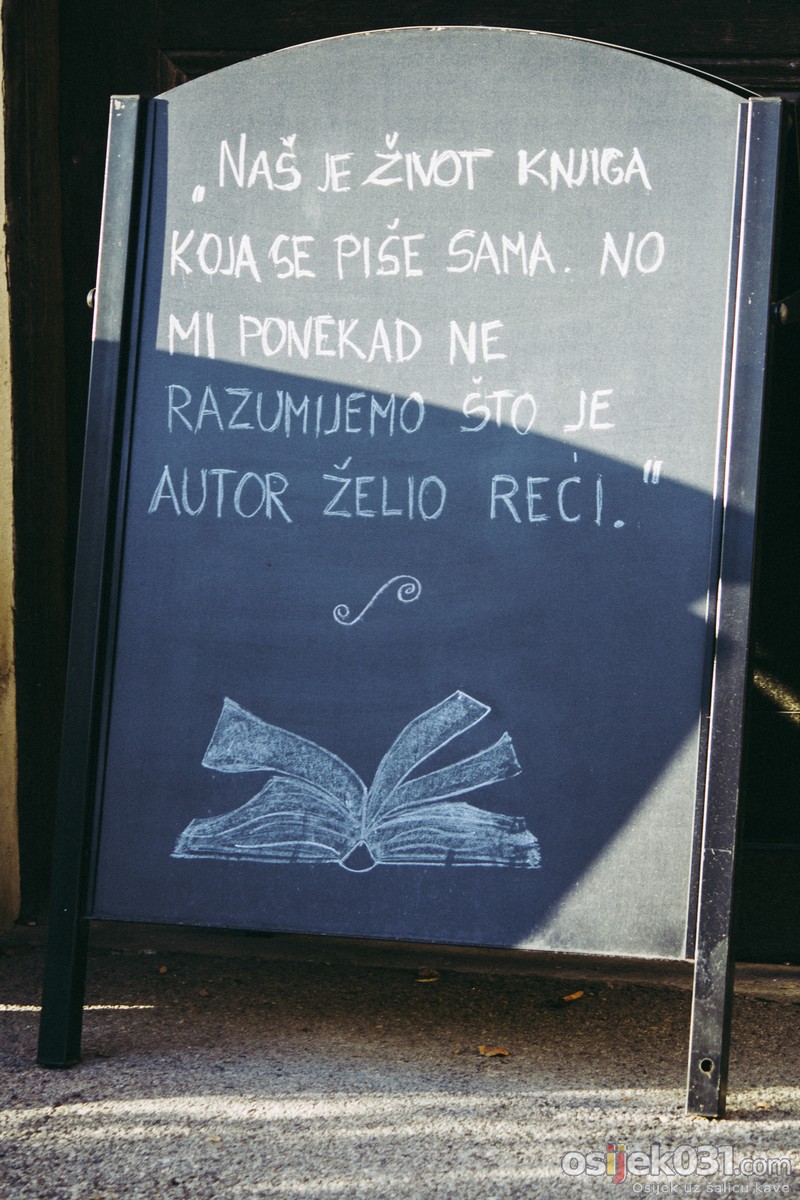 „NAŠ JE ŽIVOT KNJIGA
KOJA SE PIŠE SAMA. NO
MI PONEKAD NE
RAZUMIJEMO ŠTO JE
AUTOR ŽELIO REĆI."
osijek031.com
Osijek uz šalicu kave